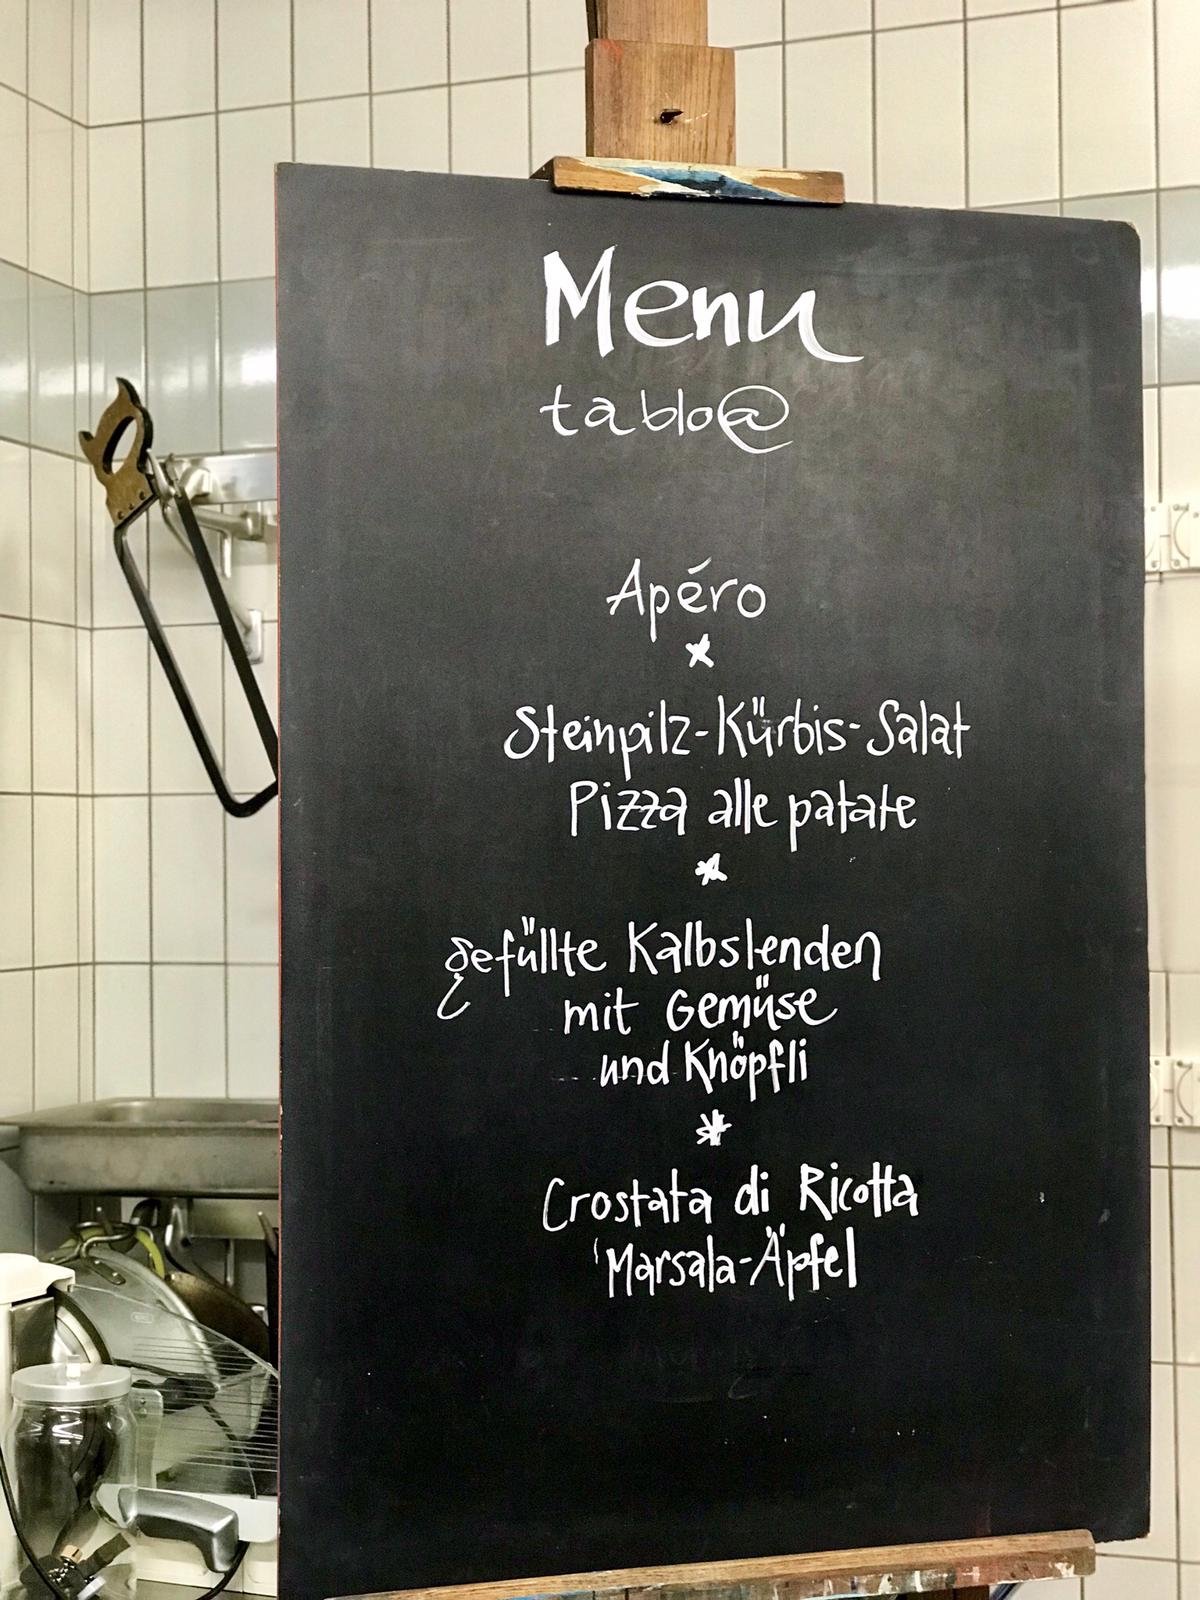 Menu
tablo@
Apéro
*
Steinpilz-Kürbis-Salat
Pizza alle patate
*
gefüllte Kalbslenden
mit Gemüse
und Knöpfli
*
Crostata di Ricotta
Marsala-Äpfel